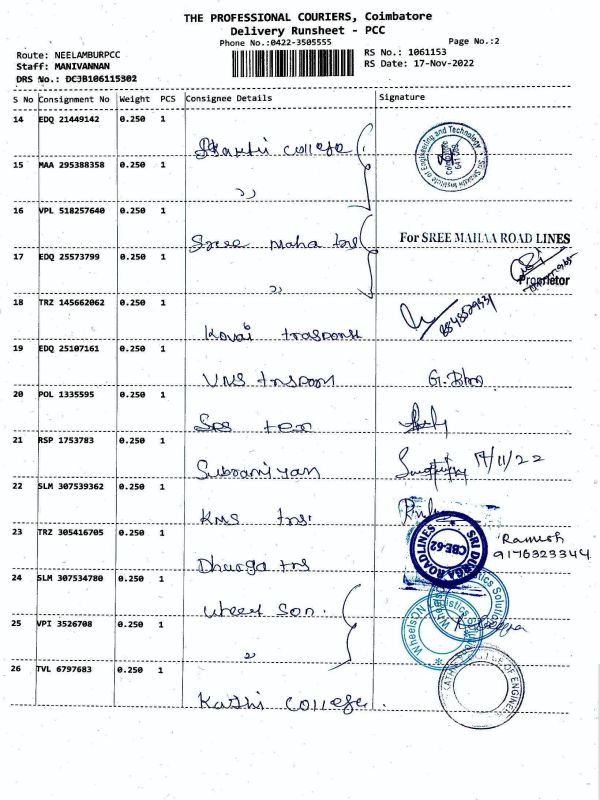 THE PROFESSIONAL COURIERS, Coimbatore
Delivery Runsheet - PCC
Phone No.:0422-3505555
Page No.:2
Route: NEELAMBURPCC
Staff: MANIVANNAN
DRS No.: DCJB106115302
RS No.: 1061153
RS Date: 17-Nov-2022
S No Consignment No Weight PCS Consignee Details Signature
14 EDQ 21449142 0.250 1
Shakthi college
15 MAA 295388358 0.250 1
"
16 VPL 518257640 0.250 1
Sree maha tns
For SREE MAHAA ROAD LINES
17 EDQ 25573799 0.250 1
"
Proprietor
18 TRZ 145662062 0.250 1
Kovai trasport
19 EDQ 25107161 0.250 1
VNS
20 POL 1335595 0.250 1
Sps tex
21 RSP 1753783 0.250 1
Subramiyan 17/11/22
22 SLM 307539362 0.250 1
KMS tns
23 TRZ 305416705 0.250 1
Dhurga tns
SRI DURGA ROADLINES
CBE-62
Ramesh
9176323344
24 SLM 307534780 0.250 1
wheel son
25 VPI 3526708 0.250 1
"
26 TVL 6797683 0.250 1
Kathi college